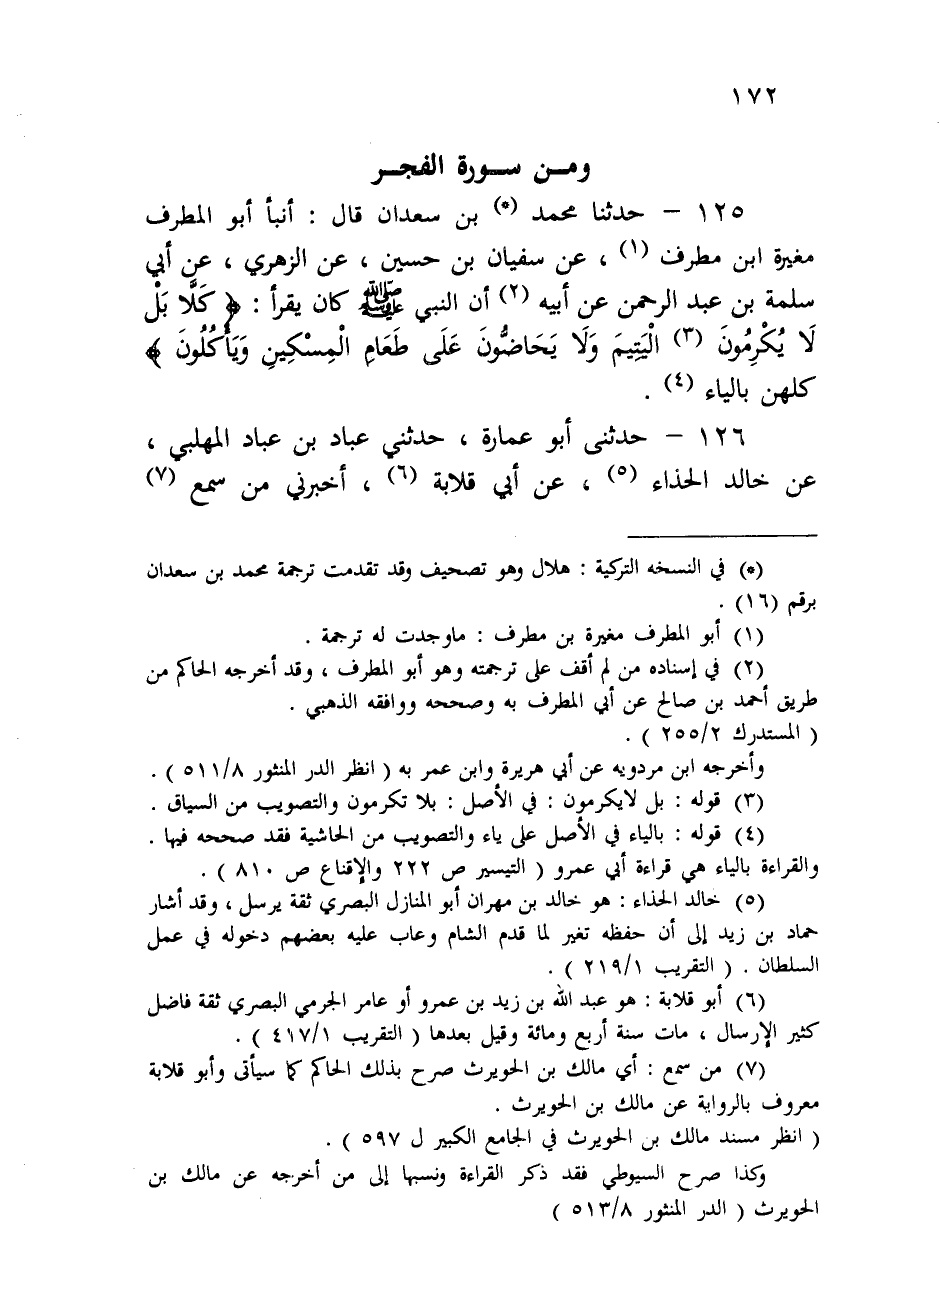 ١٧٢
ومـن سـورة الفجـر
١٢٥ – حدثنا محمد (*) بن سعدان قال : أنبأ أبو المطرف
مغيرة ابن مطرف (١) ، عن سفيان بن حسين ، عن الزهري ، عن أبي
سلمة بن عبد الرحمن عن أبيه (٢) أن النبي ﷺ كان يقرأ : ﴿ كَلَّا بَلْ
لَا يُكْرِمُونَ (٣) الْيَتِيمَ وَلَا يَحَاضُّونَ عَلَى طَعَامِ الْمِسْكِينِ وَيَأْكُلُونَ ﴾
كلهن بالياء (٤) .
١٢٦ – حدثنى أبو عمارة ، حدثني عباد بن عباد المهلبي ،
عن خالد الحذاء (٥) ، عن أبي قلابة (٦) ، أخبرني من سمع (٧)
(*) في النسخه التركية : هلال وهو تصحيف وقد تقدمت ترجمة محمد بن سعدان
برقم (١٦) .
(١) أبو المطرف مغيرة بن مطرف : ماوجدت له ترجمة .
(٢) في إسناده من لم أقف على ترجمته وهو أبو المطرف ، وقد أخرجه الحاكم من
طريق أحمد بن صالح عن أبي المطرف به وصححه ووافقه الذهبي .
( المستدرك ٢٥٥/٢ ) .
وأخرجه ابن مردويه عن أبي هريرة وابن عمر به ( انظر الدر المنثور ٥١١/٨ ) .
(٣) قوله : بل لايكرمون : في الأصل : بلا تكرمون والتصويب من السياق .
(٤) قوله : بالياء في الأصل على ياء والتصويب من الحاشية فقد صححه فيها .
والقراءة بالياء هي قراءة أبي عمرو ( التيسير ص ٢٢٢ والإقناع ص ٨١٠ ) .
(٥) خالد الحذاء : هو خالد بن مهران أبو المنازل البصري ثقة يرسل ، وقد أشار
حماد بن زيد إلى أن حفظه تغير لما قدم الشام وعاب عليه بعضهم دخوله في عمل
السلطان . ( التقريب ٢١٩/١ ) .
(٦) أبو قلابة : هو عبد الله بن زيد بن عمرو أو عامر الجرمي البصري ثقة فاضل
كثير الإرسال ، مات سنة أربع ومائة وقيل بعدها ( التقريب ٤١٧/١ ) .
(٧) من سمع : أي مالك بن الحويرث صرح بذلك الحاكم كما سيأتى وأبو قلابة
معروف بالرواية عن مالك بن الحويرث .
( انظر مسند مالك بن الحويرث في الجامع الكبير ل ٥٩٧ ) .
وكذا صرح السيوطي فقد ذكر القراءة ونسبها إلى من أخرجه عن مالك بن
الحويرث ( الدر المنثور ٥١٣/٨ )